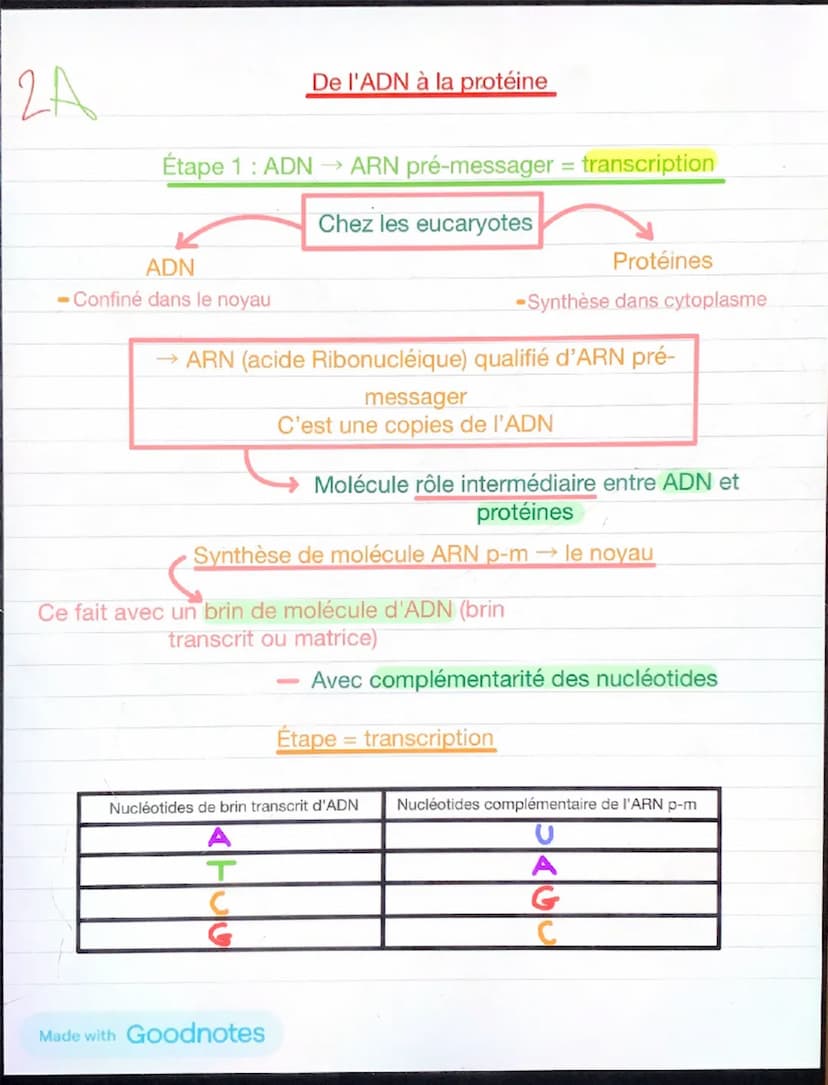 2A
De l'ADN à la protéine
Étape 1 : ADN → ARN pré-messager = transcription
Chez les eucaryotes
ADN
Protéines
- Confiné dans le noyau
- Synthèse dans cytoplasme
→ ARN (acide Ribonucléique) qualifié d'ARN pré-
messager
C'est une copies de l'ADN
Molécule rôle intermédiaire entre ADN et
protéines
Synthèse de molécule ARN p-m → le noyau
Ce fait avec un brin de molécule d'ADN (brin
transcrit ou matrice)
— Avec complémentarité des nucléotides
Étape = transcription
Nucléotides de brin transcrit d'ADN Nucléotides complémentaire de l'ARN p-m
A U
T A
C G
G C
Made with Goodnotes